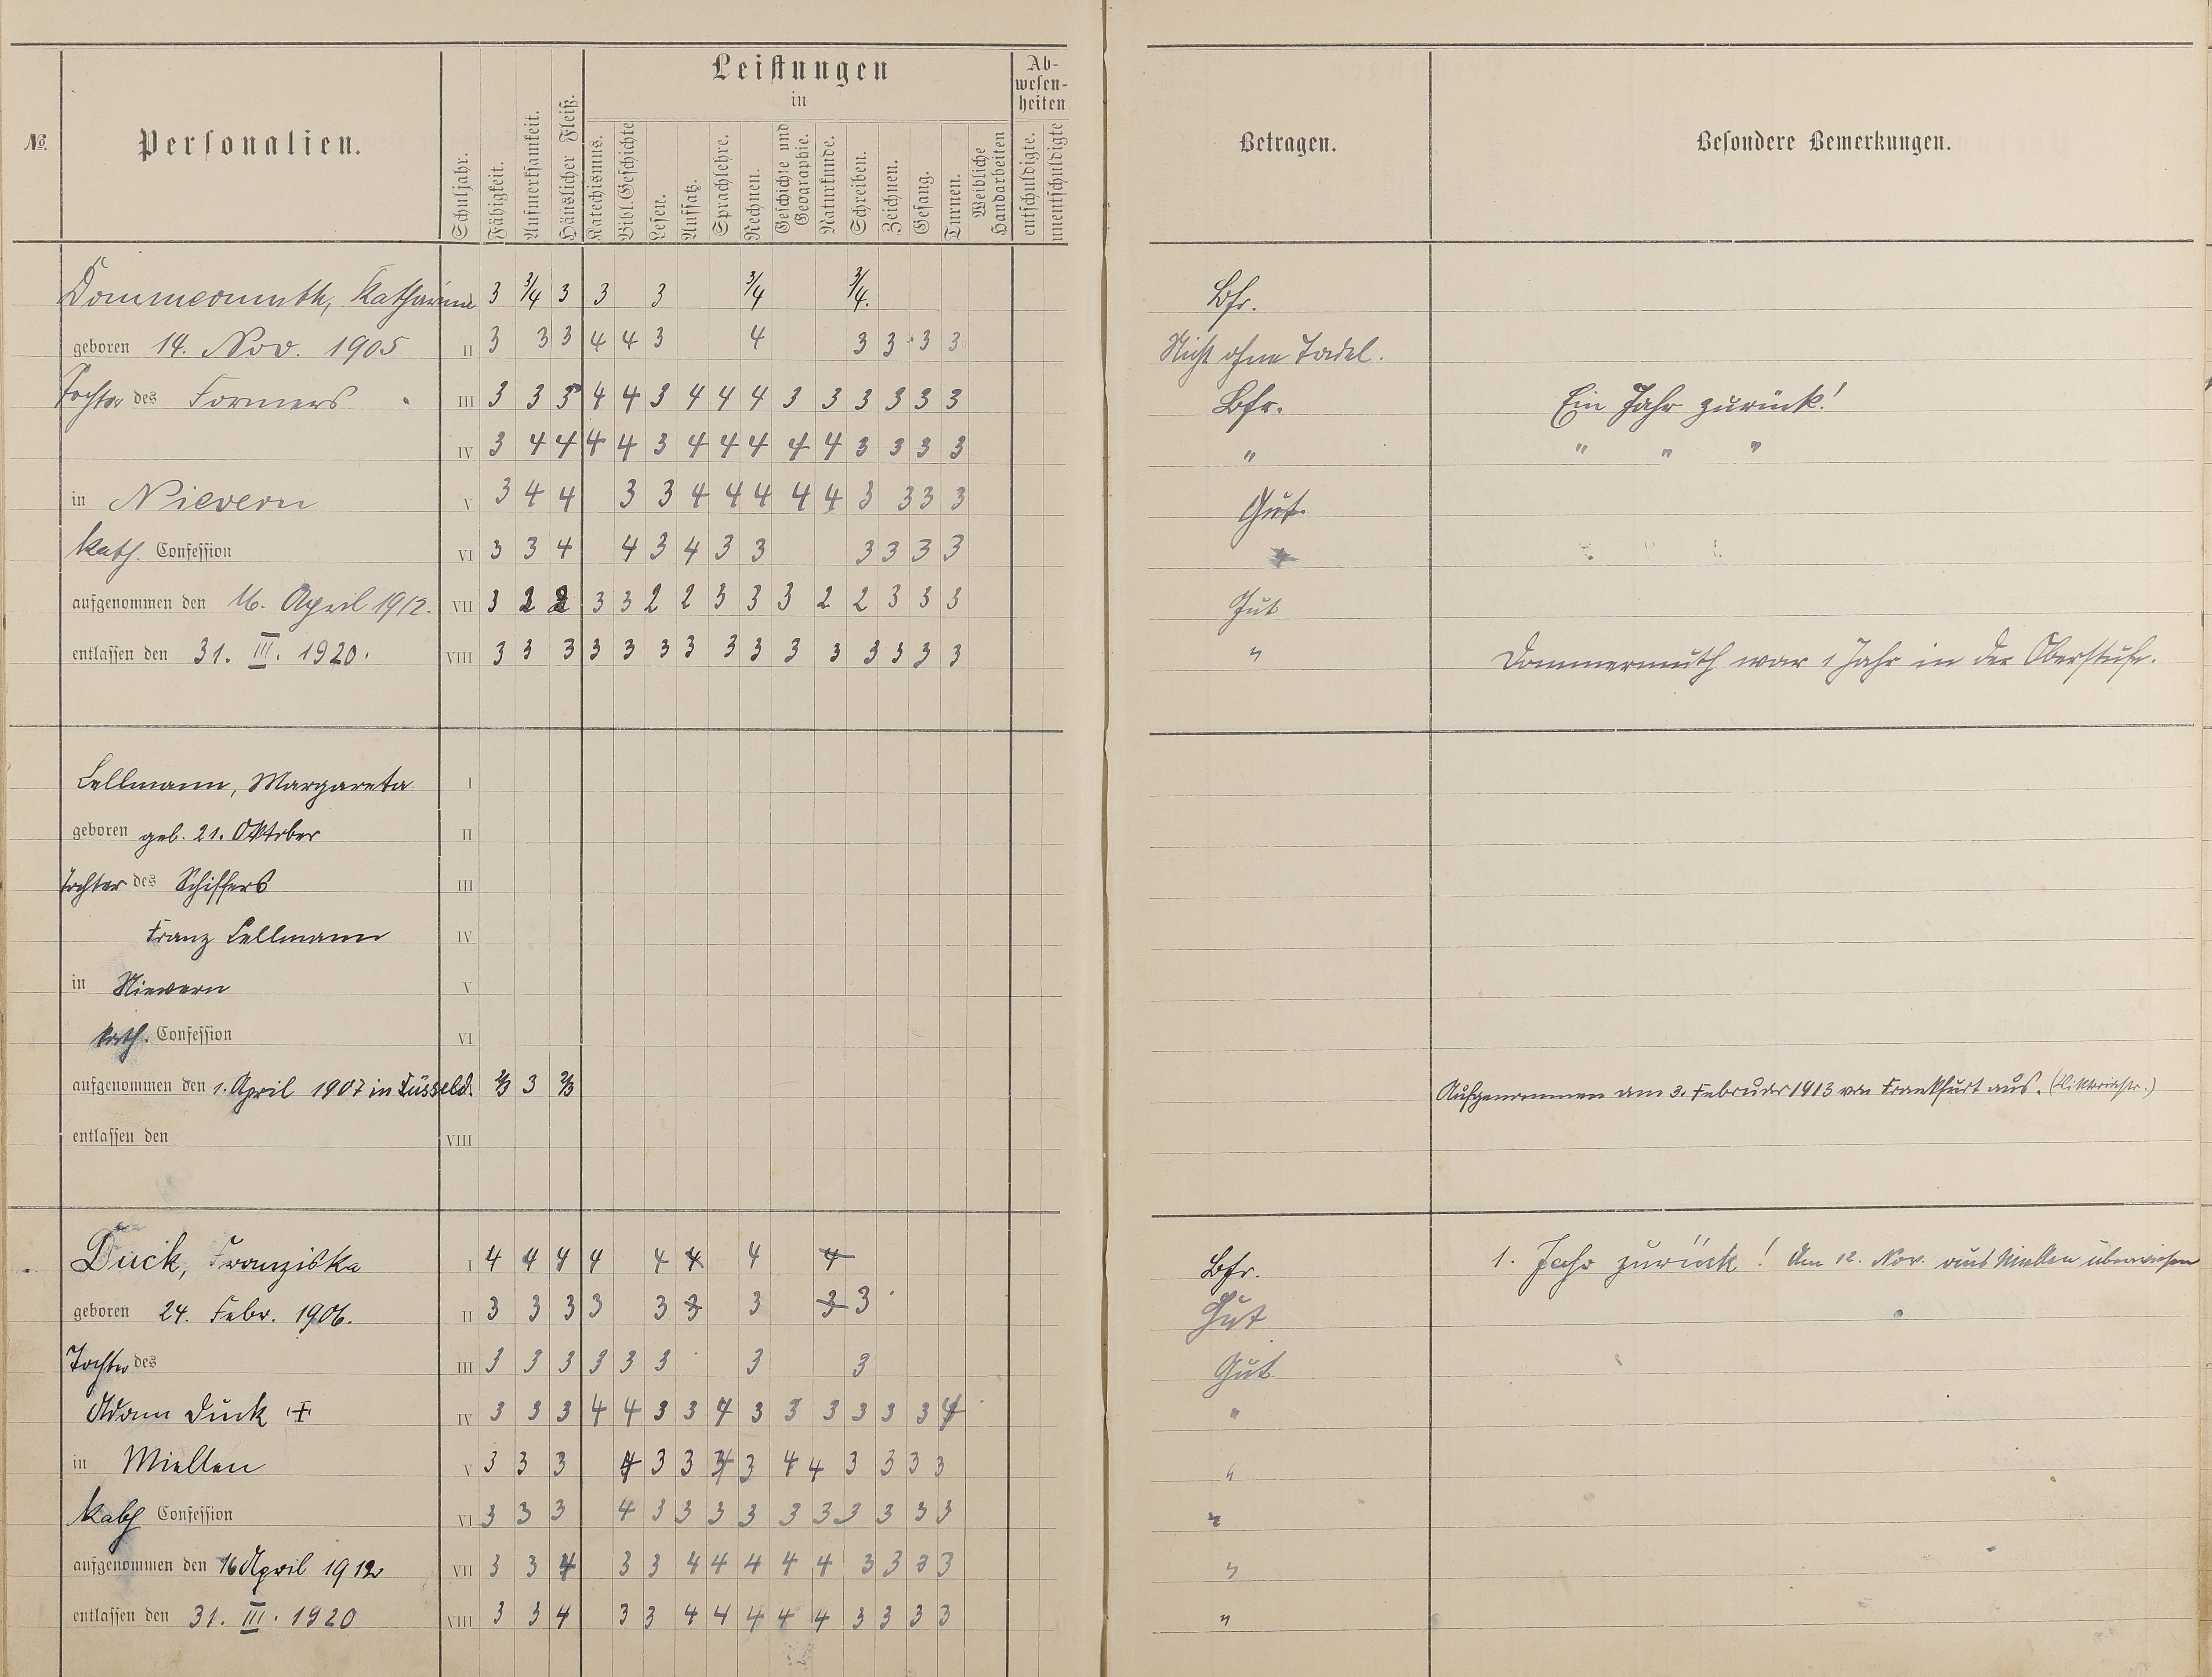 №
Personalien.
Schuljahr.
Fähigkeit.
Aufmerksamkeit.
Häuslicher Fleiß.
Leistungen
in
Katechismus.
Bibl. Geschichte
Lesen.
Aufsatz.
Sprachlehre.
Rechnen.
Geschichte und
Geographie.
Naturkunde.
Schreiben.
Zeichnen.
Gesang.
Turnen.
Weibliche
Handarbeiten
Ab-
wesen-
heiten
entschuldigte.
unentschuldigte
Betragen.
Besondere Bemerkungen.
Dommermuth, Katharina 3 3/4 3 3 3 3/4 3/4. Bfr.
geboren 14. Nov. 1905 II 3 3 3 4 4 3 4 3 3 3 3 Nicht ohne Tadel.
Tochter des Formers III 3 3 3 4 4 3 4 4 4 3 3 3 3 3 3 Bfr. Ein Jahr zurück!
IV 3 4 4 4 4 3 4 4 4 4 4 3 3 3 3 " " " "
in Nievern V 3 4 4 3 3 4 4 4 4 4 3 3 3 3 Gut.
kath. Confession VI 3 3 4 4 3 4 3 3 3 3 3 3
aufgenommen den 16. April 1912. VII 3 2 2 3 3 2 2 3 3 3 2 2 3 3 3 Gut
entlassen den 31. III. 1920. VIII 3 3 3 3 3 3 3 3 3 3 3 3 3 3 3 " Dommermuth war 1 Jahr in der Oberstufe.
Lellmann, Margareta I
geboren geb. 21. Oktober II
Tochter des Schiffers III
Franz Lellmann IV
in Nievern V
kath. Confession VI
aufgenommen den 1. April 1907 in Düsseld. 2/3 3 2/3 Aufgenommen am 3. Februar 1913 von Frankfurt aus.
entlassen den VIII
Duck, Franziska I 4 4 4 4 4 4 4 4 Bfr. 1. Jahr zurück! Am 12. Nov. aus Miellen überwiesen
geboren 24. Febr. 1906. II 3 3 3 3 3 3 3 3 3 Gut
Tochter des III 3 3 3 3 3 3 3 3 Gut
Adam Duck IV 3 3 3 4 4 3 3 4 3 3 3 3 3 3 4 "
in Miellen V 3 3 3 4 3 3 3 4 4 3 3 3 3 "
kath Confession VI 3 3 3 4 3 3 3 3 3 3 3 3 3 3 "
aufgenommen den 16 April 1912 VII 3 3 4 3 3 4 4 4 4 4 3 3 3 3 "
entlassen den 31. III. 1920 VIII 3 3 4 3 3 4 4 4 4 4 3 3 3 3 "